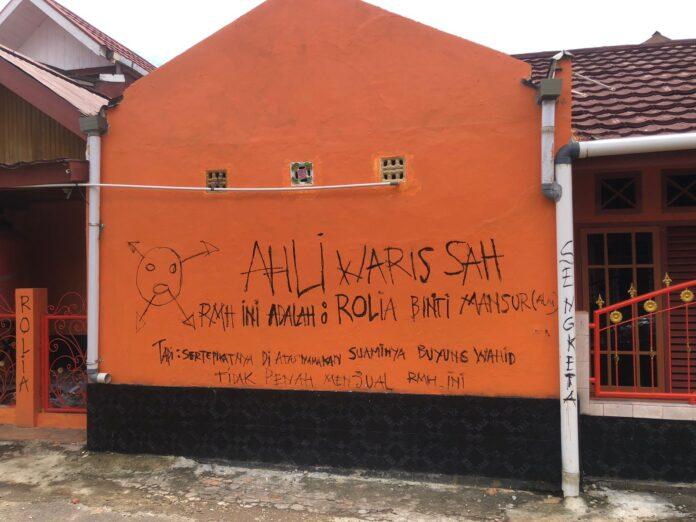 AHLI WARIS SAH
RMH INI ADALAH : ROLIA BINTI MANSUR (ALM)
TAPI : SERTEPIKATNYA DI ATAS NAMAKAN SUAMINYA BUYUNG WAHID
TIDAK PENAH MENJUAL RMH_INI
ROLIA
SENGKETA